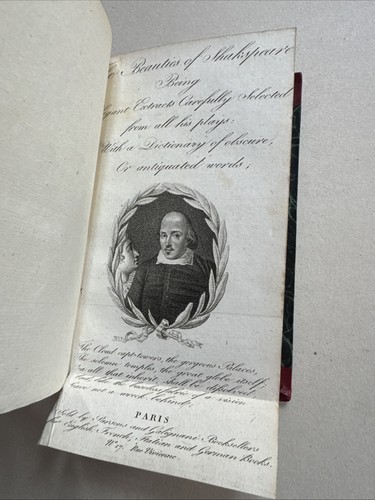 Beauties of Shakspeare
Being
Extracts Carefully Selected
from all his plays:
With a Dictionary of obscure,
Or antiquated words;
The Cloud capt-towers, the gorgeous Palaces,
The solemn temples, the great globe itself,
all that inherit, shall be dissolved
like the baseless fabric of a vision
Leave not a wreck behind;
PARIS
Sold by Parsons and Galignani Booksellers
English, French, Italian and German Books,
Nº 17. Rue Vivienne.